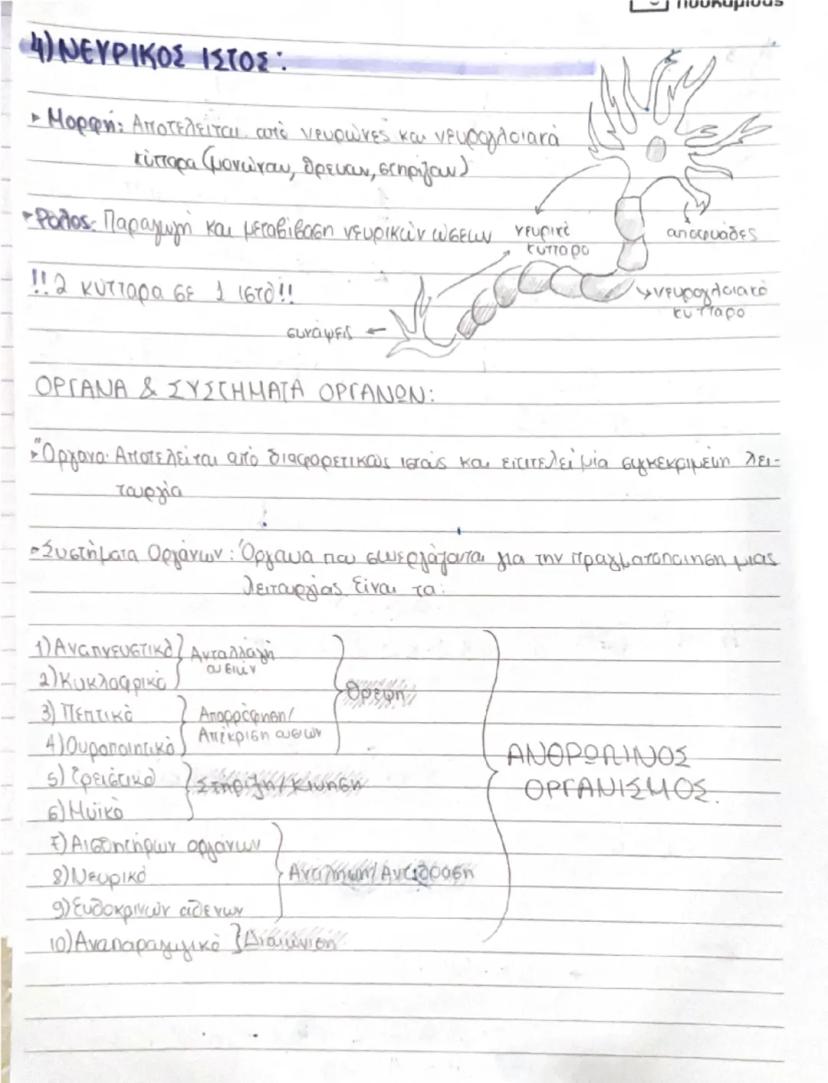 4) ΝΕΥΡΙΚΟΣ ΙΣΤΟΣ:
▸ Μορφή: Αποτελείται από νευρώνες και νευρογλοιακά
κύτταρα (μονώνουν, θρέφουν, στηρίζουν)
▸ Ρόλος: Παραγωγή και μεταβίβαση νευρικών ώσεων
νευρικό
κύτταρο
αποφυάδες
!!2 κύτταρα σε 1 ιστό!!
νευρογλοιακό
κύτταρο
συνάψεις
ΟΡΓΑΝΑ & ΣΥΣΤΗΜΑΤΑ ΟΡΓΑΝΩΝ:
▸ Όργανο: Αποτελείται από διαφορετικούς ιστούς και επιτελεί μία συγκεκριμένη λει-
τουργία
▸ Συστήματα Οργάνων: Όργανα που συνεργάζονται για την πραγματοποίηση μιας
λειτουργίας Είναι τα:
1) Αναπνευστικό
2) Κυκλοφορικό
Ανταλλαγή
ουσιών
3) Πεπτικό
4) Ουροποιητικό
Απορρόφηση/
Απέκκριση ουσιών
Θρέψη
5) Ερειστικό
6) Μυϊκό
Στήριξη/Κίνηση
7) Αισθητήριων οργάνων
8) Νευρικό
9) Ενδοκρινών αδένων
Αντίληψη/Αντίδραση
10) Αναπαραγωγικό } Διαιώνιση
ΑΝΘΡΩΠΙΝΟΣ
ΟΡΓΑΝΙΣΜΟΣ.